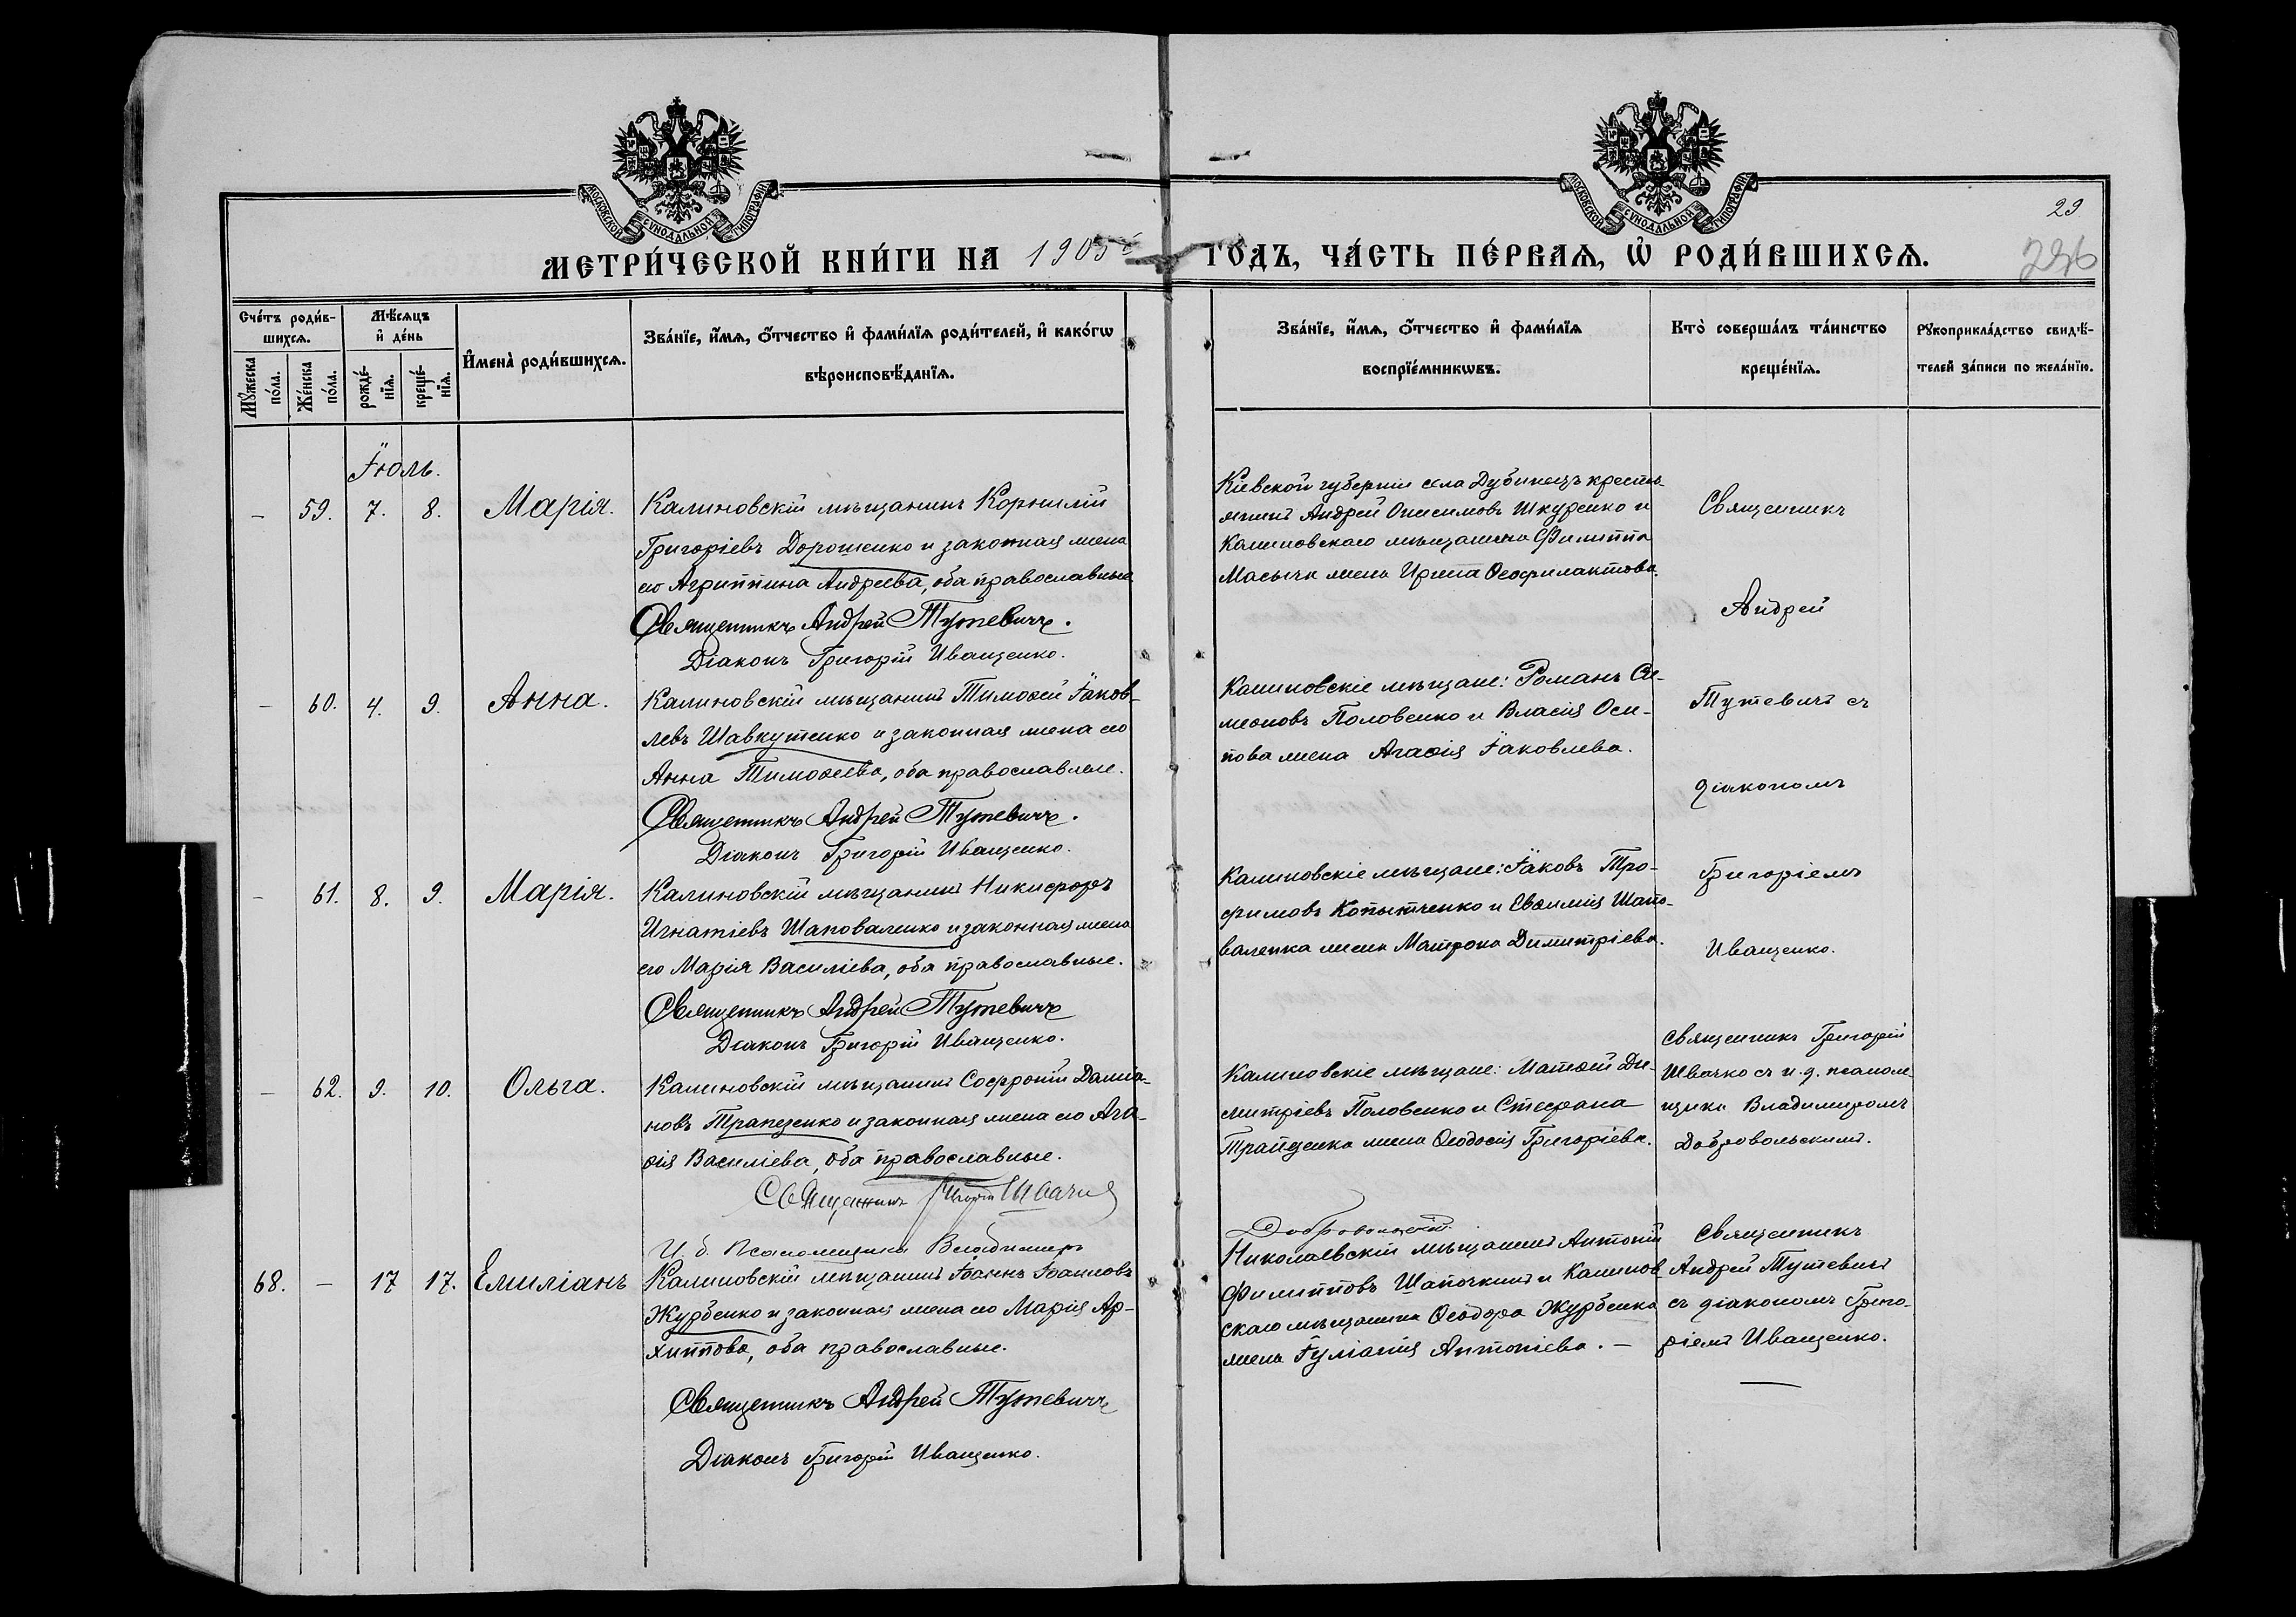 МОСКОВСКОЙ СѴНОДАЛЬНОЙ ТИПОГРАФІИ
МОСКОВСКОЙ СѴНОДАЛЬНОЙ ТИПОГРАФІИ
29
МЕТРИ́ЧЕСКОЙ КНИ́ГИ НА 1905й ГОДЪ, ЧА́СТЬ ПЕ́РВАѦ, Ѡ҆ РОДИ́ВШИХСѦ.
Сче́тъ роди́в-
шихсѧ.
Мꙋ́жеска
по́ла.
Же́нска
по́ла.
Мѣ́сѧцъ
и҆ де́нь
рожде́-
нїѧ.
креще́-
нїѧ.
И҆мена̀ роди́вшихсѧ.
Зва́нїе, и҆́мѧ, ѻ҆́тчество и҆ фами́лїѧ роди́телей, и҆ како́гѡ
вѣроисповѣ́данїѧ.
Зва́нїе, и҆́мѧ, ѻ҆́тчество и҆ фами́лїѧ
воспрїе́мникѡвъ.
Кто̀ соверша́лъ та́инство
креще́нїѧ.
Рꙋкоприкла́дство свидѣ́-
телей за́писи по жела́нїю.
Іюль.
– 59. 7. 8. Марія.
Калиновскій мѣщанинъ Корнилій
Григоріевъ Дорошенко и законная жена
его Агриппина Андреева, оба православные
Священникъ Андрей Тутевичъ.
Діаконъ Григорій Иващенко.
Кіевской губерніи села Дубинецъ кресть-
янинъ Андрей Онисимовъ Шкуренко и
Калиновскаго мѣщанина Филиппа
Масычи жена Ирина Ѳеофилактова.
Священникъ
Андрей
Тутевичъ съ
діакономъ
Григоріемъ
Иващенко.
– 60. 4. 9. Анна.
Калиновскій мѣщанинъ Тимоѳей Іаков-
левъ Шавкутенко и законная жена его
Анна Тимоѳеева, оба православные.
Священникъ Андрей Тутевичъ.
Діаконъ Григорій Иващенко.
Калиновскіе мѣщане: Романъ Си-
меоновъ Половенко и Власія Оси-
пова жена Агаѳія Іаковлева.
– 61. 8. 9. Марія.
Калиновскій мѣщанинъ Никифоръ
Игнатіевъ Шаповаленко и законная жена
его Марія Василіева, оба православные.
Священникъ Андрей Тутевичъ
Діаконъ Григорій Иващенко.
Калиновскіе мѣщане: Іаковъ Тро-
фимовъ Копытченко и Евѳимія Шапо-
валенка жена Матрона Димитріева.
– 62. 9. 10. Ольга.
Калиновскій мѣщанинъ Софроній Даміа-
новъ Трапценко и законная жена его Ага-
ѳія Василіева, оба православные.
Священникъ Григорій Швачко
И. д. Псаломщика Владимиръ
Добровольскій.
Калиновскіе мѣщане: Матѳей Ди-
митріевъ Половенко и Стефана
Трапценка жена Ѳеодосія Григоріева.
Священникъ Григорій
Швачко съ и. д. псалом-
щика Владимиромъ
Добровольскимъ.
68. – 17 17. Емиліанъ
Калиновскій мѣщанинъ Іоаннъ Іоанновъ
Журбенко и законная жена его Марія Ар-
хиппова, оба православные.
Священникъ Андрей Тутевичъ
Діаконъ Григорій Иващенко.
Николаевскій мѣщанинъ Антоній
Филипповъ Шапочкинъ и Калинов-
скаго мѣщанина Ѳеодора Журбенка
жена Іуліанія Антоніева. –
Священникъ
Андрей Тутевичъ
съ діакономъ Григо-
ріемъ Иващенко.